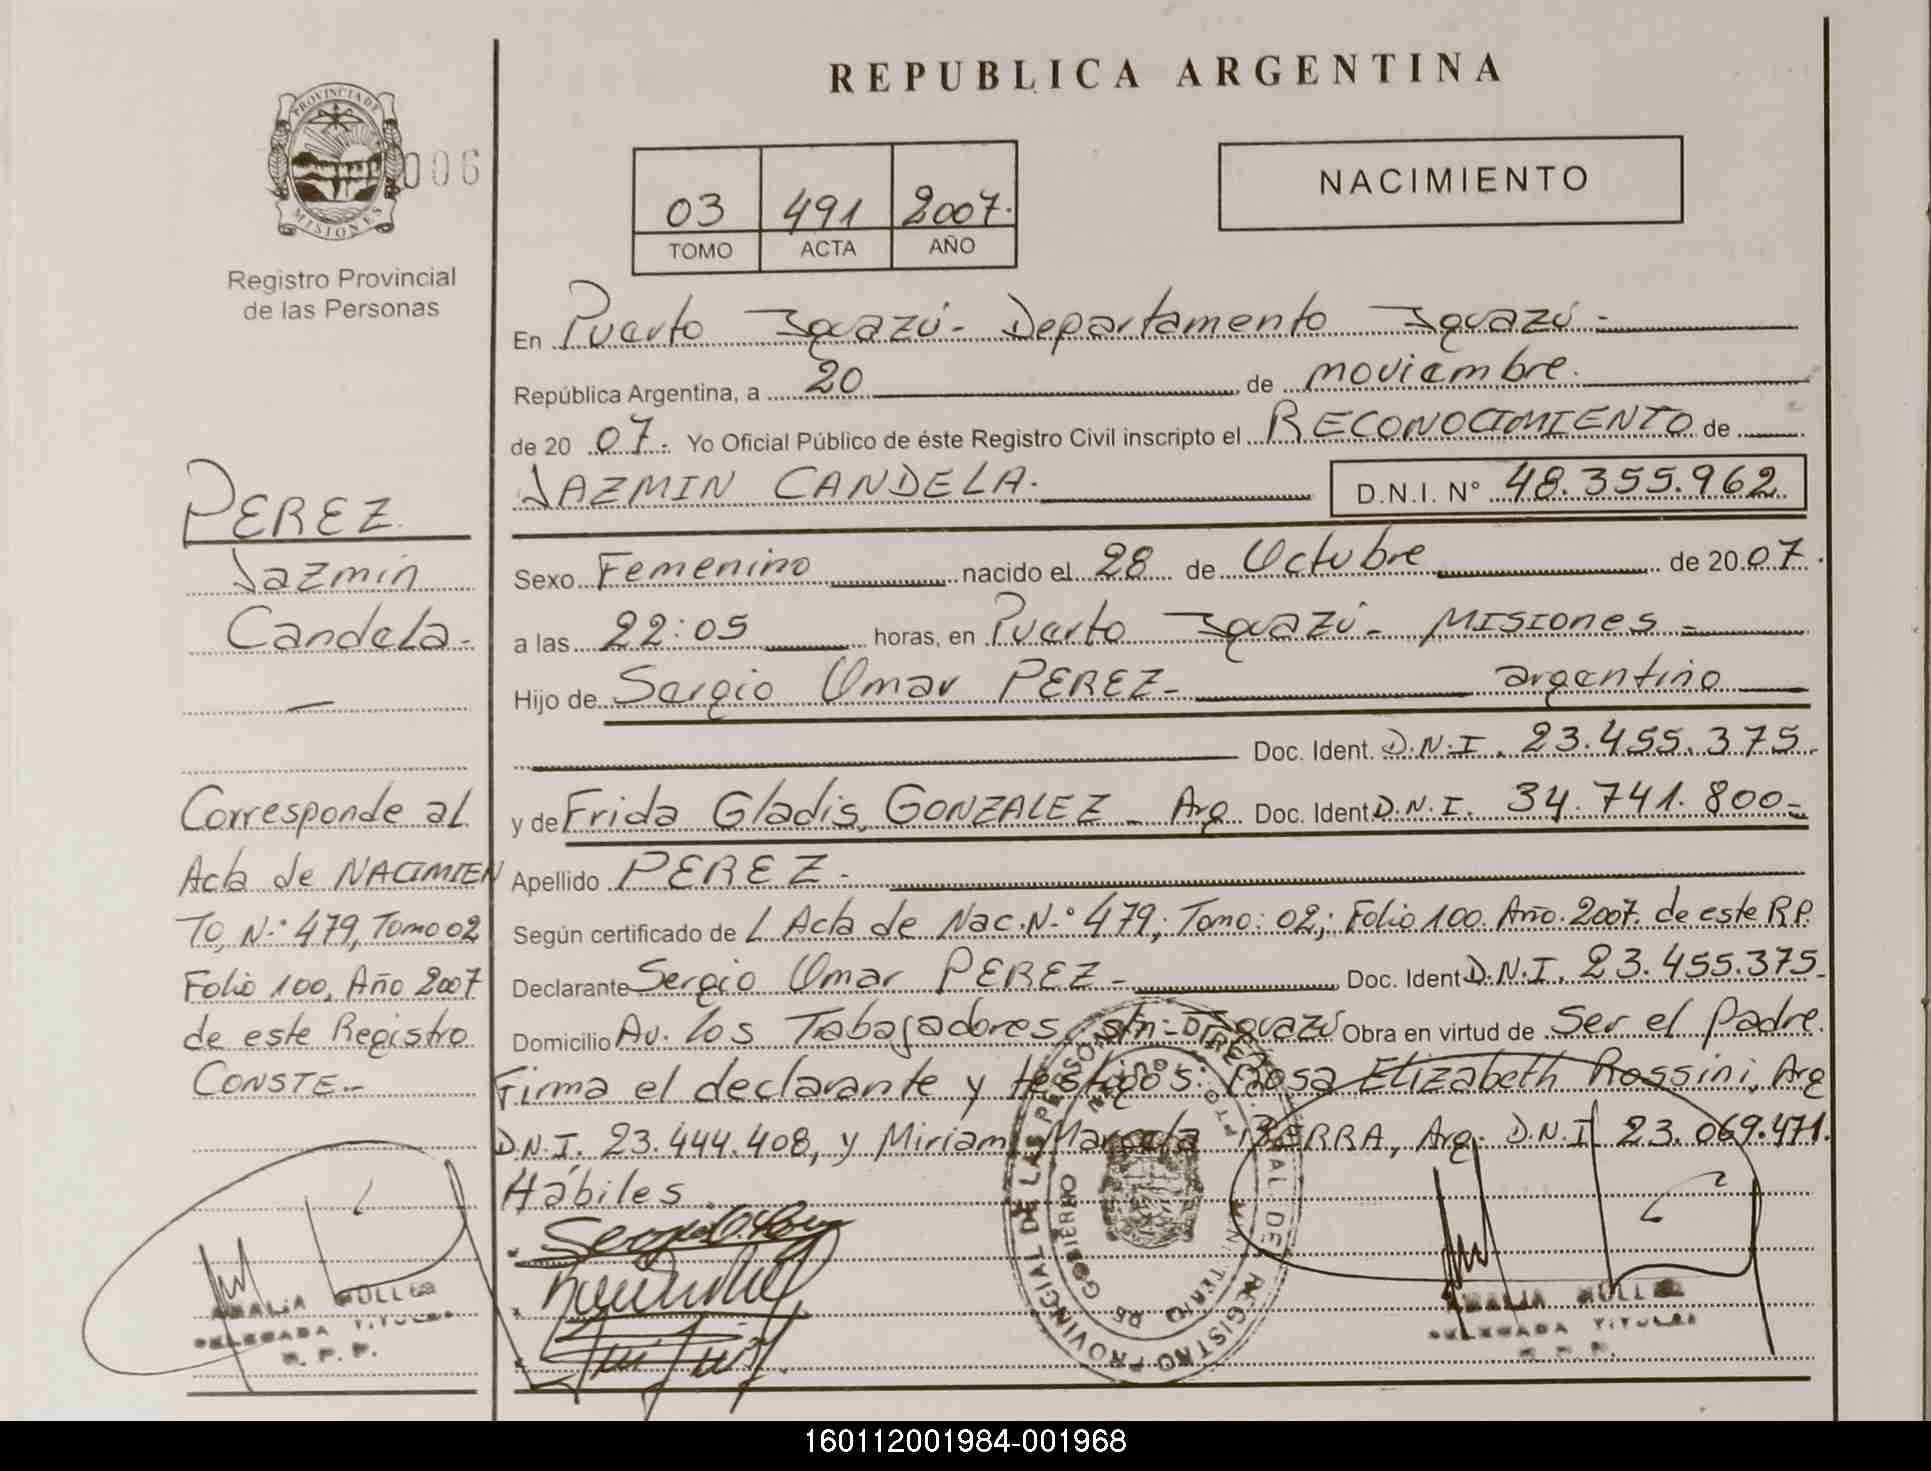 REPUBLICA ARGENTINA
PROVINCIA DE
MISIONES
006
Registro Provincial
de las Personas
03 491 2007.
TOMO ACTA AÑO
NACIMIENTO
En Puerto Iguazú - Departamento Iguazú -
República Argentina, a 20 de noviembre.
de 20 07. Yo Oficial Público de éste Registro Civil inscripto el RECONOCIMIENTO de
JAZMIN CANDELA. D.N.I. N° 48.355.962
Sexo Femenino nacido el 28 de Octubre de 20 07.
a las 22:05 horas, en Puerto Iguazú - MISIONES -
Hijo de Sergio Omar PEREZ - argentino
Doc. Ident. D.N.I. 23.455.375
y de Frida Gladis, GONZALEZ - Arg Doc. Ident D.N.I. 34.741.800 -
Apellido PEREZ -
Según certificado de L Acta de Nac. N° 479; Tomo: 02; Folio 100. Año. 2007. de este R.P.
Declarante Sergio Omar PEREZ - Doc. Ident D.N.I. 23.455.375
Domicilio Av. Los Trabajadores s/n - Iguazú Obra en virtud de Ser el Padre.
Firma el declarante y testigos: Rosa Elizabeth Rossini, Arg
D.N.I. 23.444.408, y Miriam Marcela BERRA, Arg. D.N.I 23.069.471.
Hábiles.
PEREZ
Jazmin
Candela -
Corresponde al
Acta de NACIMIEN
TO, N° 479, Tomo 02
Folio 100, Año 2007
de este Registro
CONSTE.-
AMALIA MULLER
DELEGADA TITULAR
R. P. P.
REGISTRO PROVINCIAL DE LAS PERSONAS
MINISTERIO DE GOBIERNO
AMALIA MULLER
DELEGADA TITULAR
R. P. P.
160112001984-001968